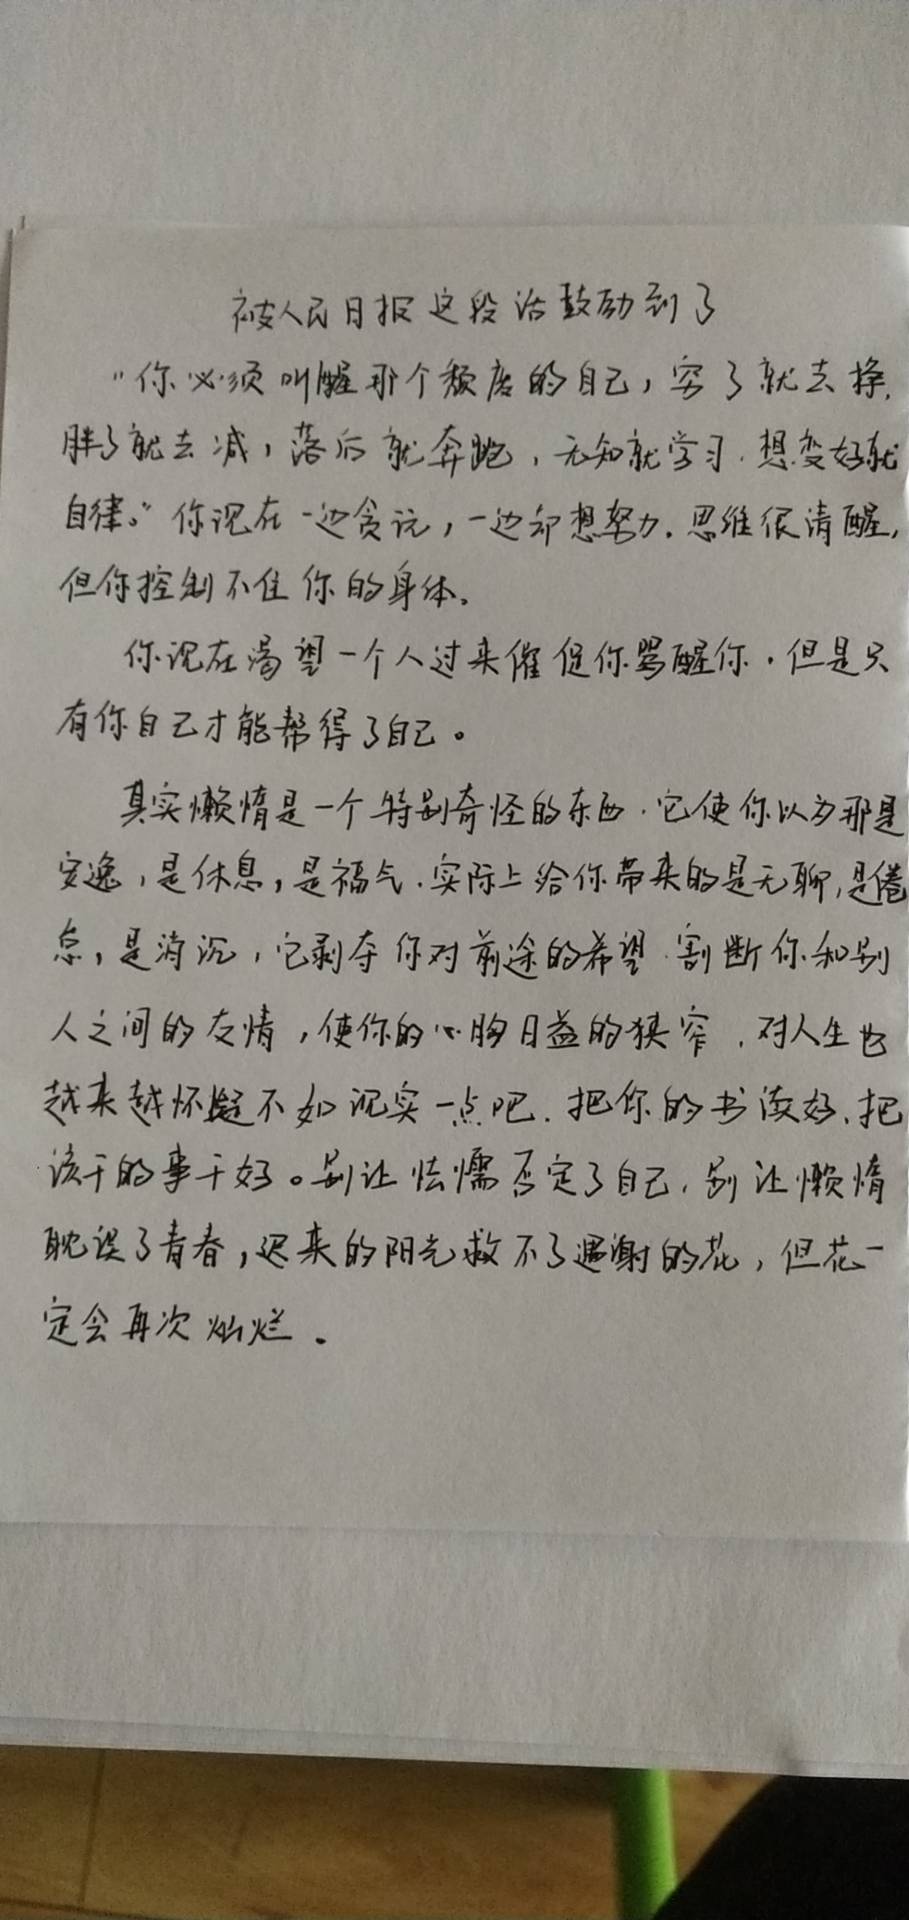 被人民日报这段话鼓励到了
“你必须叫醒那个颓废的自己，穷了就去挣，
胖了就去减，落后就奔跑，无知就学习，想变好就
自律。”你现在一边贪玩，一边却想努力，思维很清醒，
但你控制不住你的身体。
你现在渴望一个人过来催促你骂醒你，但是只
有你自己才能帮得了自己。
真实懒惰是一个特别奇怪的东西，它使你以为那是
安逸，是休息，是福气，实际上给你带来的是无聊，是倦
怠，是消沉，它剥夺你对前途的希望，割断你和别
人之间的友情，使你的心胸日益的狭窄，对人生也
越来越怀疑不如现实一点吧，把你的书读好，把
该干的事干好。别让怯懦否定了自己，别让懒惰
耽误了青春，迟来的阳光救不了凋谢的花，但花一
定会再次灿烂。